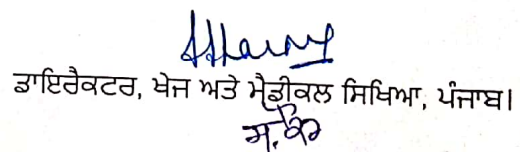 ਡਾਇਰੈਕਟਰ, ਖੋਜ ਅਤੇ ਮੈਡੀਕਲ ਸਿਖਿਆ, ਪੰਜਾਬ।